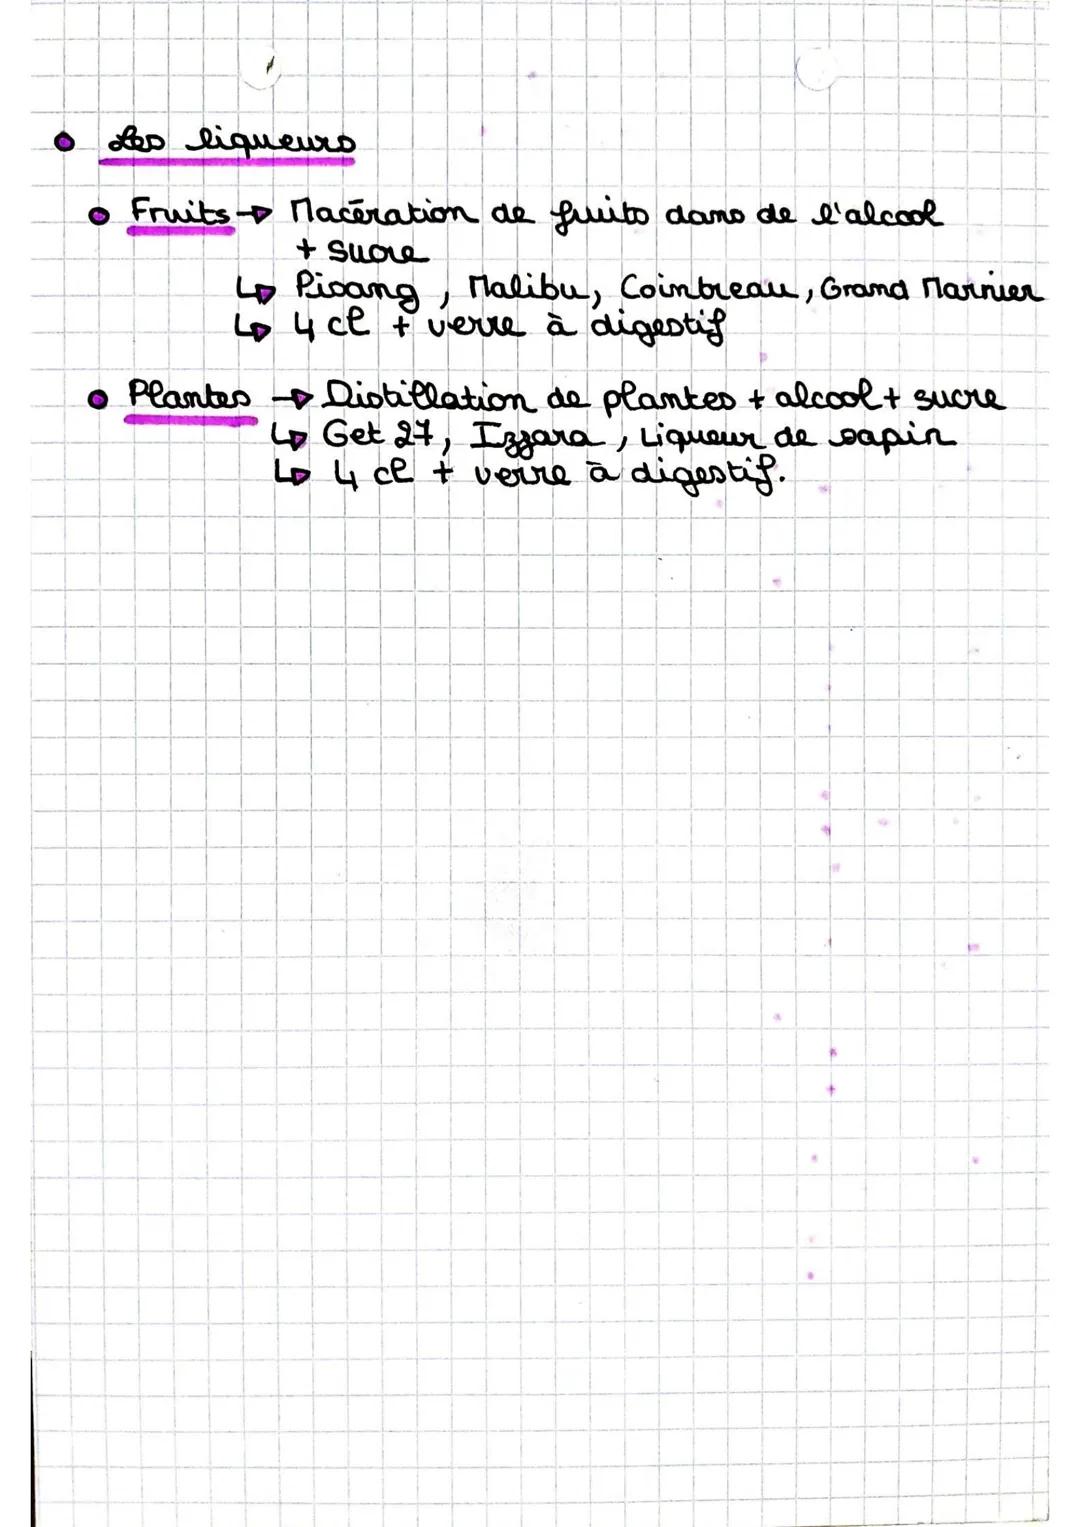 Les liqueurs
Fruits → Macération de fruits dans de l'alcool
+ sucre
↳ Pisang, Malibu, Cointreau, Grand Marnier
↳ 4 cl + verre à digestif
Plantes → Distillation de plantes + alcool + sucre
↳ Get 27, Izzara, Liqueur de sapin
↳ 4 cl + verre à digestif.